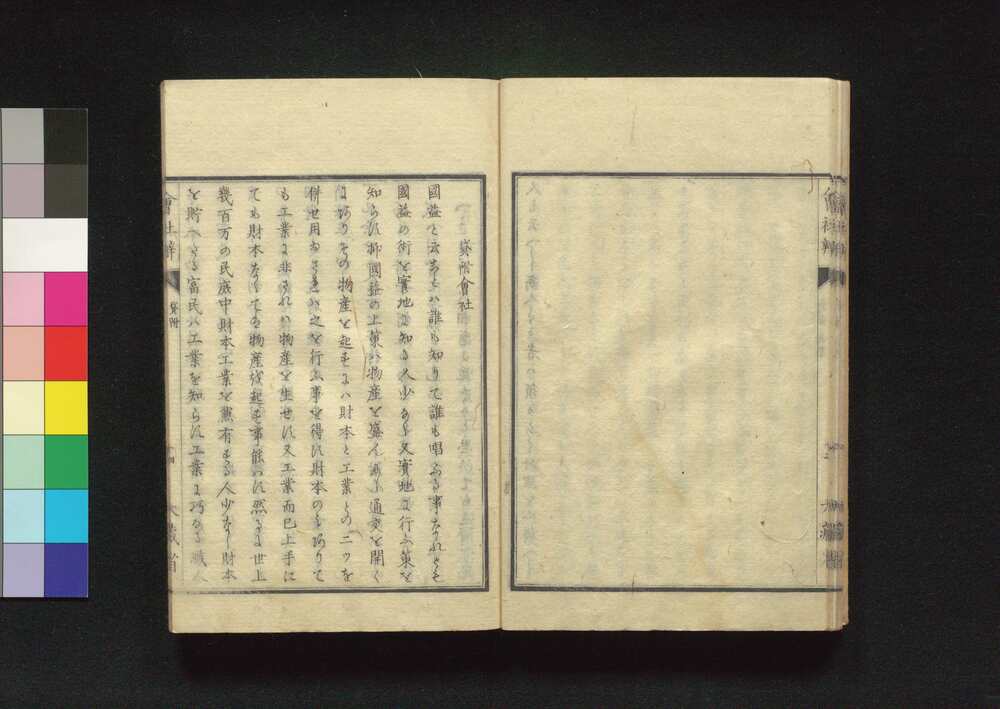 會社辨
大藏省
貸附會社
國益と云事ハ誰も知りて誰も唱ふる事なれとも
國益の術を實地に知る人少なし又實地に行ふ策を
知らに抑國益の上策ハ物産を盛んにし通商を開く
にありその物産を起すにハ財本と工業との二ツを
併せ用ひされハ之を行ふ事を得に財本のミありて
も工業に非されハ物産を生せに又工業而已上手に
ても財本なくてハ物産を起す事能ハに然るに世上
幾百万の民庶中財本工業を兼有する人少なし財本
を貯へたる富民ハ工業を知らに工業に巧なる職人
會社辨
貸附
十四
大藏省